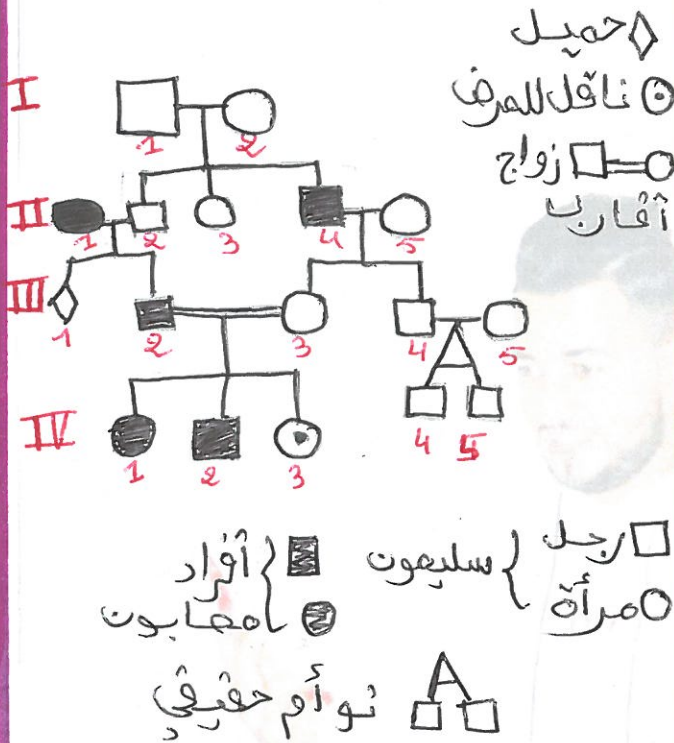 حميل
ناقل للمرض
زواج
أقارب
I
1 2
II
1 2 3 4 5
III
1 2 3 4 5
IV
1 2 3 4 5
رجل
امرأة
سليمون
أفراد
مصابون
توأم حقيقي